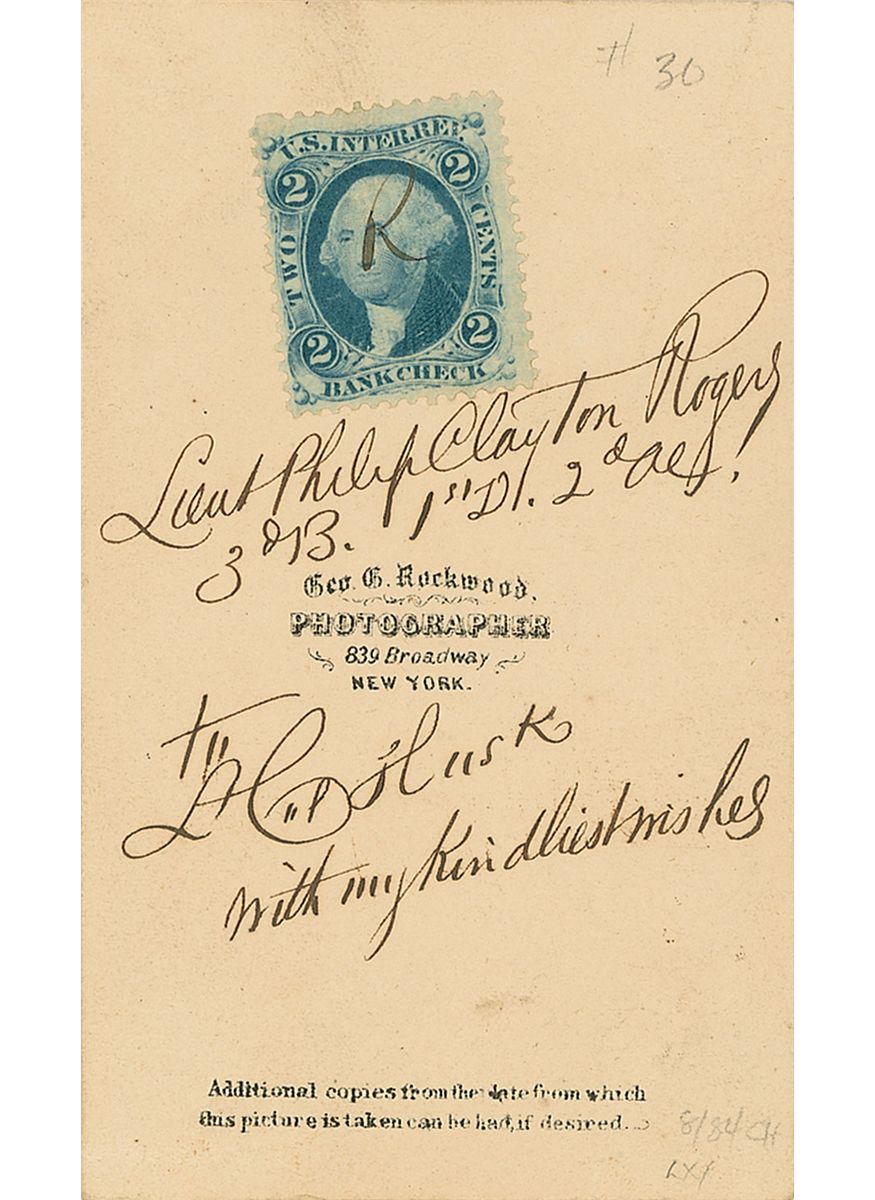 # 30
U.S. INTER. REV.
2 2
TWO CENTS
R
2 2
BANK CHECK
Lieut Philip Clayton Rogers
3d B. 1st D. 2d
Geo. G. Rockwood,
PHOTOGRAPHER
839 Broadway
NEW YORK.
To
Husk
with my kindliest wishes
Additional copies from the date from which
this picture is taken can be had, if desired.
8/84 CH
LXX